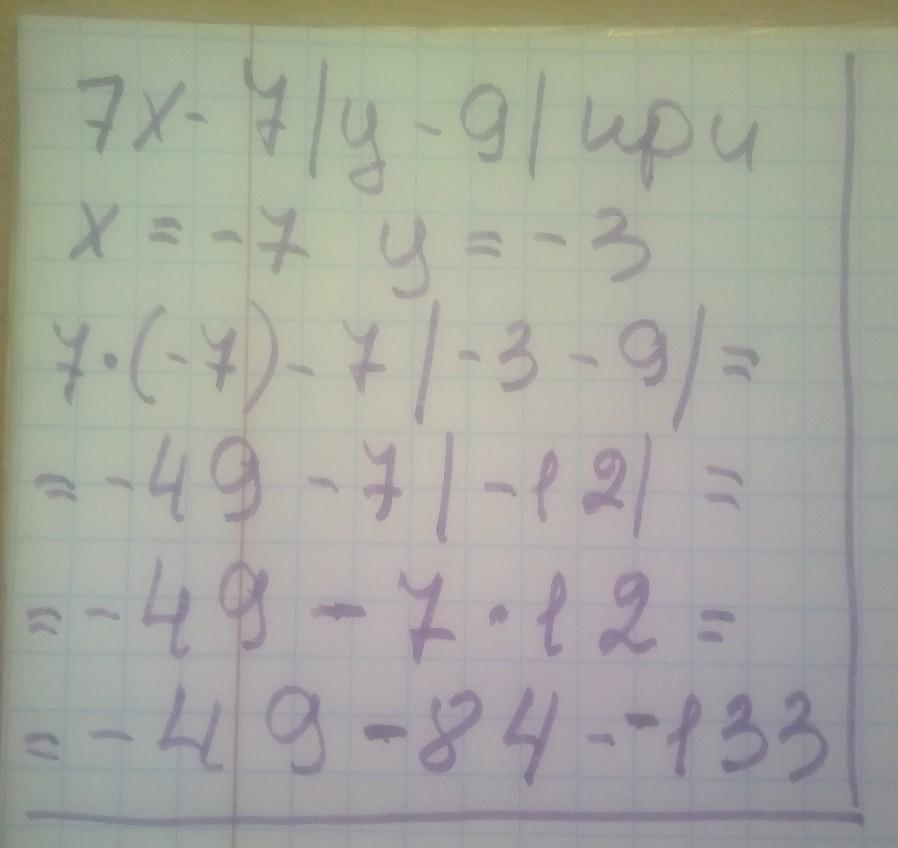 7x - 7|y - 9| при
x = -7 y = -3
7·(-7) - 7|-3 - 9| =
= -49 - 7|-12| =
= -49 - 7·12 =
= -49 - 84 - -133